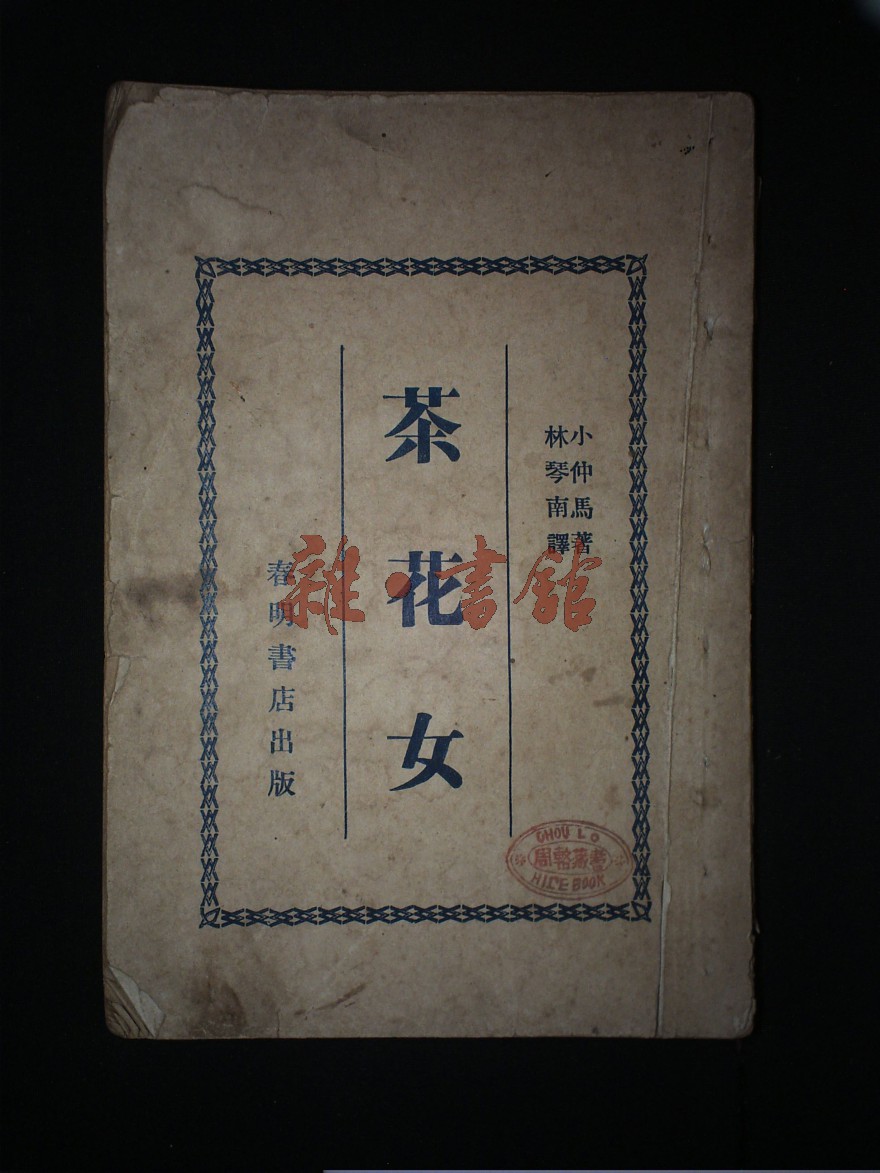 小仲馬著
林琴南譯
茶花女
春明書店出版
雜·書館
CHOU LO
HICE BOOK